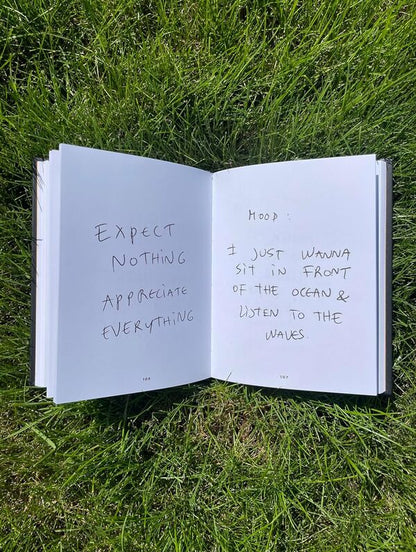 EXPECT
NOTHING
APPRECIATE
EVERYTHING
MOOD:
I JUST WANNA
SIT IN FRONT
OF THE OCEAN &
LISTEN TO THE
WAVES.